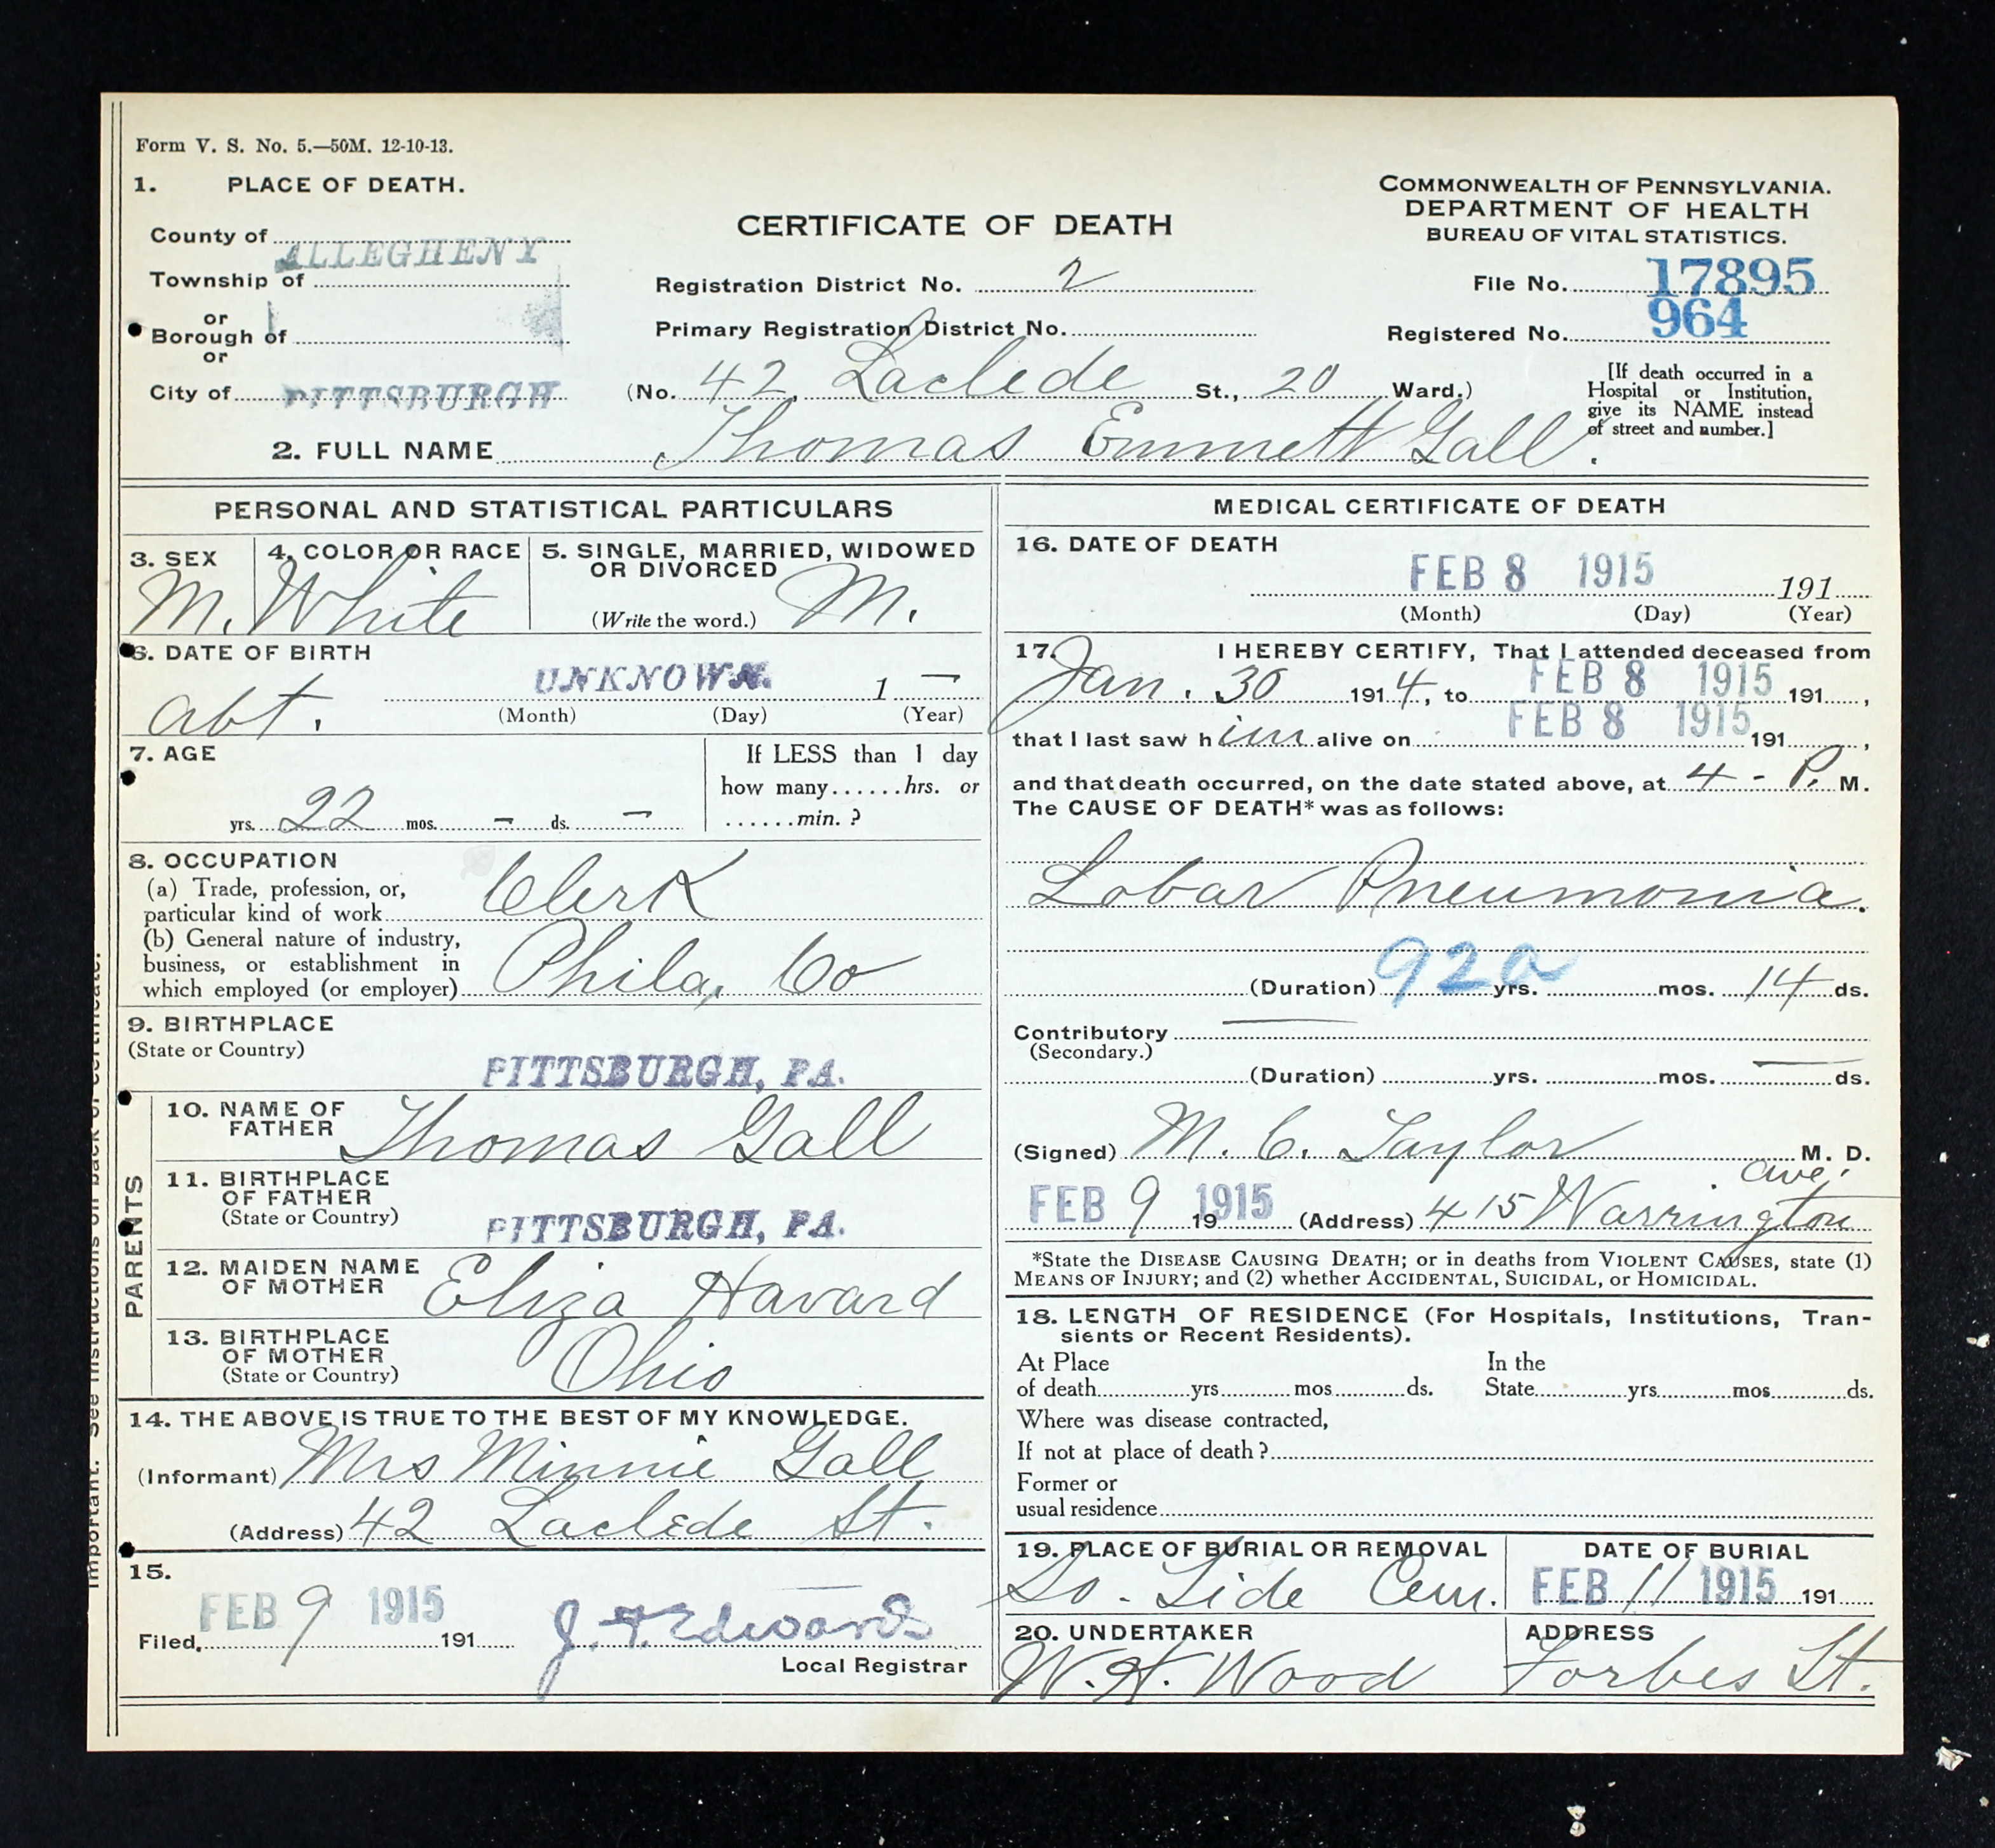 Form V. S. No. 5.—50M. 12-10-13.
1. PLACE OF DEATH.
County of ALLEGHENY
Township of
or
Borough of
or
City of PITTSBURGH
CERTIFICATE OF DEATH
COMMONWEALTH OF PENNSYLVANIA.
DEPARTMENT OF HEALTH
BUREAU OF VITAL STATISTICS.
Registration District No. 2
File No. 17895
Primary Registration District No.
Registered No. 964
(No. 42, Laclede St., 20 Ward.)
[If death occurred in a
Hospital or Institution,
give its NAME instead
of street and number.]
2. FULL NAME Thomas Emmett Gall.
PERSONAL AND STATISTICAL PARTICULARS
3. SEX
M.
4. COLOR OR RACE
White
5. SINGLE, MARRIED, WIDOWED
OR DIVORCED
(Write the word.) M.
6. DATE OF BIRTH
abt. UNKNOWN. 1 —
(Month) (Day) (Year)
7. AGE
yrs. 22 mos. — ds. —
If LESS than 1 day
how many......hrs. or
......min. ?
8. OCCUPATION
(a) Trade, profession, or,
particular kind of work Clerk
(b) General nature of industry,
business, or establishment in
which employed (or employer) Phila, Co
9. BIRTHPLACE
(State or Country)
PITTSBURGH, PA.
PARENTS
10. NAME OF
FATHER Thomas Gall
11. BIRTHPLACE
OF FATHER
(State or Country) PITTSBURGH, PA.
12. MAIDEN NAME
OF MOTHER Eliza Havard
13. BIRTHPLACE
OF MOTHER
(State or Country) Ohio
14. THE ABOVE IS TRUE TO THE BEST OF MY KNOWLEDGE.
(Informant) Mrs Minnie Gall
(Address) 42 Laclede St.
15.
Filed, FEB 9 1915 191
J. F. Edwards
Local Registrar
MEDICAL CERTIFICATE OF DEATH
16. DATE OF DEATH
FEB 8 1915 191
(Month) (Day) (Year)
17. I HEREBY CERTIFY, That I attended deceased from
Jan. 30 1914, to FEB 8 1915 191 ,
that I last saw him alive on FEB 8 1915 191 ,
and that death occurred, on the date stated above, at 4 - P. M.
The CAUSE OF DEATH* was as follows:
Lobar Pneumonia.
92a
(Duration) yrs. mos. 14 ds.
Contributory —
(Secondary.)
(Duration) yrs. mos. — ds.
(Signed) M. C. Taylor M. D.
FEB 9 1915 19 (Address) 415 Warrington ave.
*State the DISEASE CAUSING DEATH; or in deaths from VIOLENT CAUSES, state (1)
MEANS OF INJURY; and (2) whether ACCIDENTAL, SUICIDAL, or HOMICIDAL.
18. LENGTH OF RESIDENCE (For Hospitals, Institutions, Tran-
sients or Recent Residents).
At Place
of death yrs mos ds.
In the
State yrs mos ds.
Where was disease contracted,
If not at place of death ?
Former or
usual residence
19. PLACE OF BURIAL OR REMOVAL
So. Side Cem.
DATE OF BURIAL
FEB 11 1915 191
20. UNDERTAKER
W. H. Wood
ADDRESS
Forbes St.